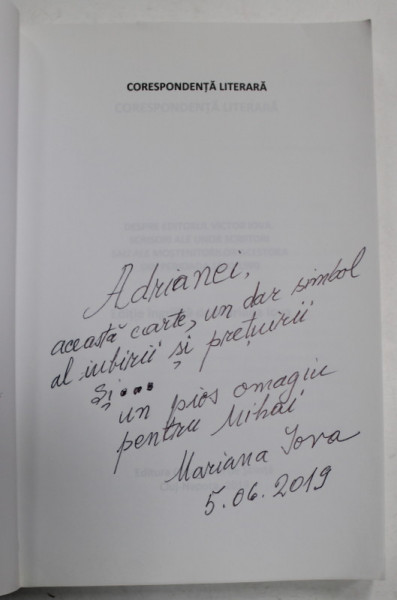 CORESPONDENȚĂ LITERARĂ
Adrianei,
această carte, un dar simbol
al iubirii și prețuirii
și...
un pios omagiu
pentru Mihai
Mariana Iova
5.06.2019